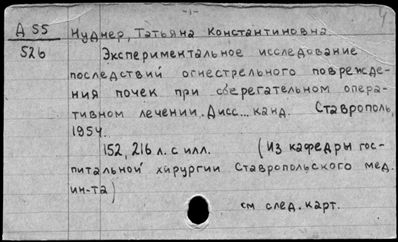 -1-
Д 55 Нуднер, Татьяна Константиновна
526 Экспериментальное исследование
последствий огнестрельного поврежде-
ния почек при сберегательном опера-
тивном лечении. Дисс... канд. Ставрополь,
1954.
152, 216 л. с илл. (Из кафедры гос-
питальной хирургии Ставропольского мед.
ин-та)
см след. карт.